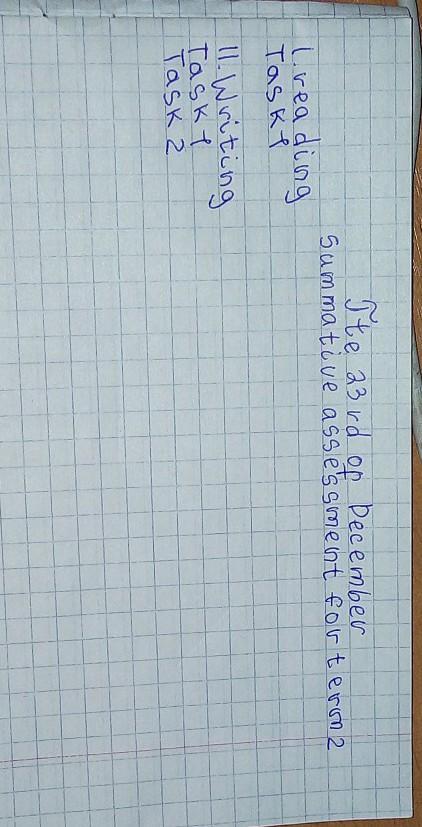 The 23rd of December
Summative assessment for term 2
I. reading
Task 1
II. Writing
Task 1
Task 2